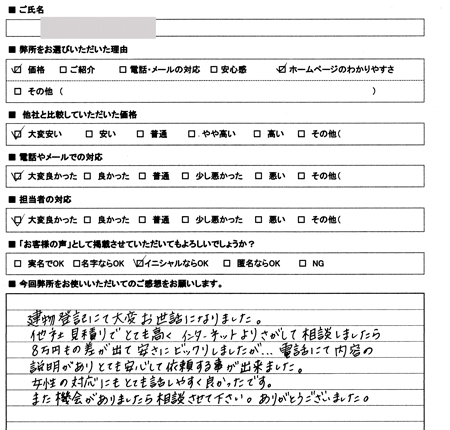 ■ ご氏名
■ 弊所をお選びいただいた理由
☑ 価格 □ ご紹介 □ 電話・メールの対応 □ 安心感 ☑ ホームページのわかりやすさ
□ その他 ( )
■ 他社と比較していただいた価格
☑ 大変安い □ 安い □ 普通 □ やや高い □ 高い □ その他(
■ 電話やメールでの対応
☑ 大変良かった □ 良かった □ 普通 □ 少し悪かった □ 悪い □ その他(
■ 担当者の対応
☑ 大変良かった □ 良かった □ 普通 □ 少し悪かった □ 悪い □ その他(
■ 「お客様の声」として掲載させていただいてもよろしいでしょうか?
□ 実名でOK □ 名字ならOK ☑ イニシャルならOK □ 匿名ならOK □ NG
■ 今回弊所をお使いいただいてのご感想をお願いします。
建物登記にて大変お世話になりました。
他社見積りでとても高く インターネットよりさがして相談しましたら
8万円もの差が出て安さにビックリしましたが… 電話にて内容の
説明がありとても安心して依頼する事が出来ました。
女性の対応にもとても話しやすく良かったです。
また機会がありましたら相談させて下さい。ありがとうございました。